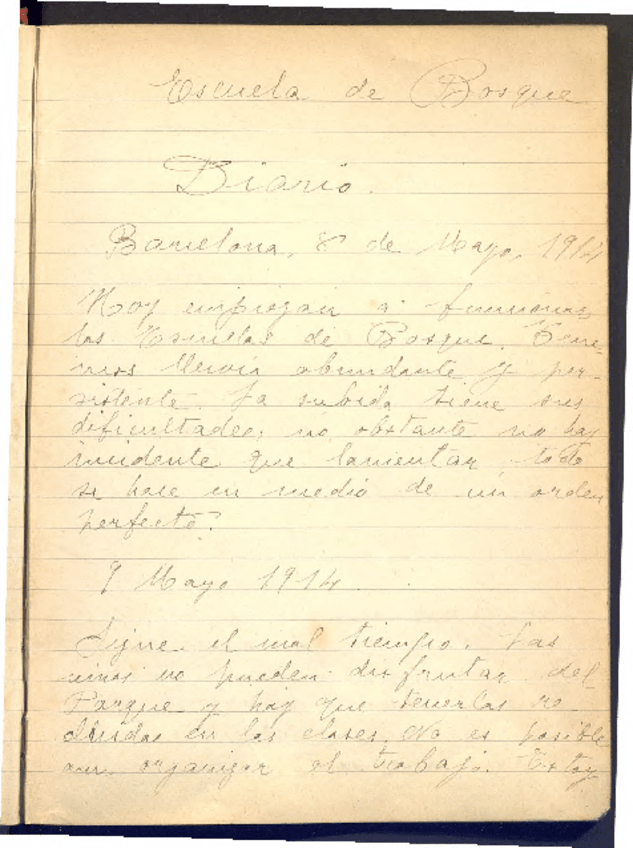 Escuela de Bosque
Diario.
Barcelona, 8 de Mayo, 1914
Hoy empiezan a funcionar
las Escuelas de Bosque. Tene-
mos lluvia abundante y per-
sistente. La subida tiene sus
dificultades; no obstante no hay
incidente que lamentar, todo
se hace en medio de un orden
perfecto.
9 Mayo 1914.
Sigue el mal tiempo. Las
niñas no pueden disfrutar del
Parque y hay que tenerlas re-
cluidas en las clases. No es posible
aun organizar el trabajo. Estoy